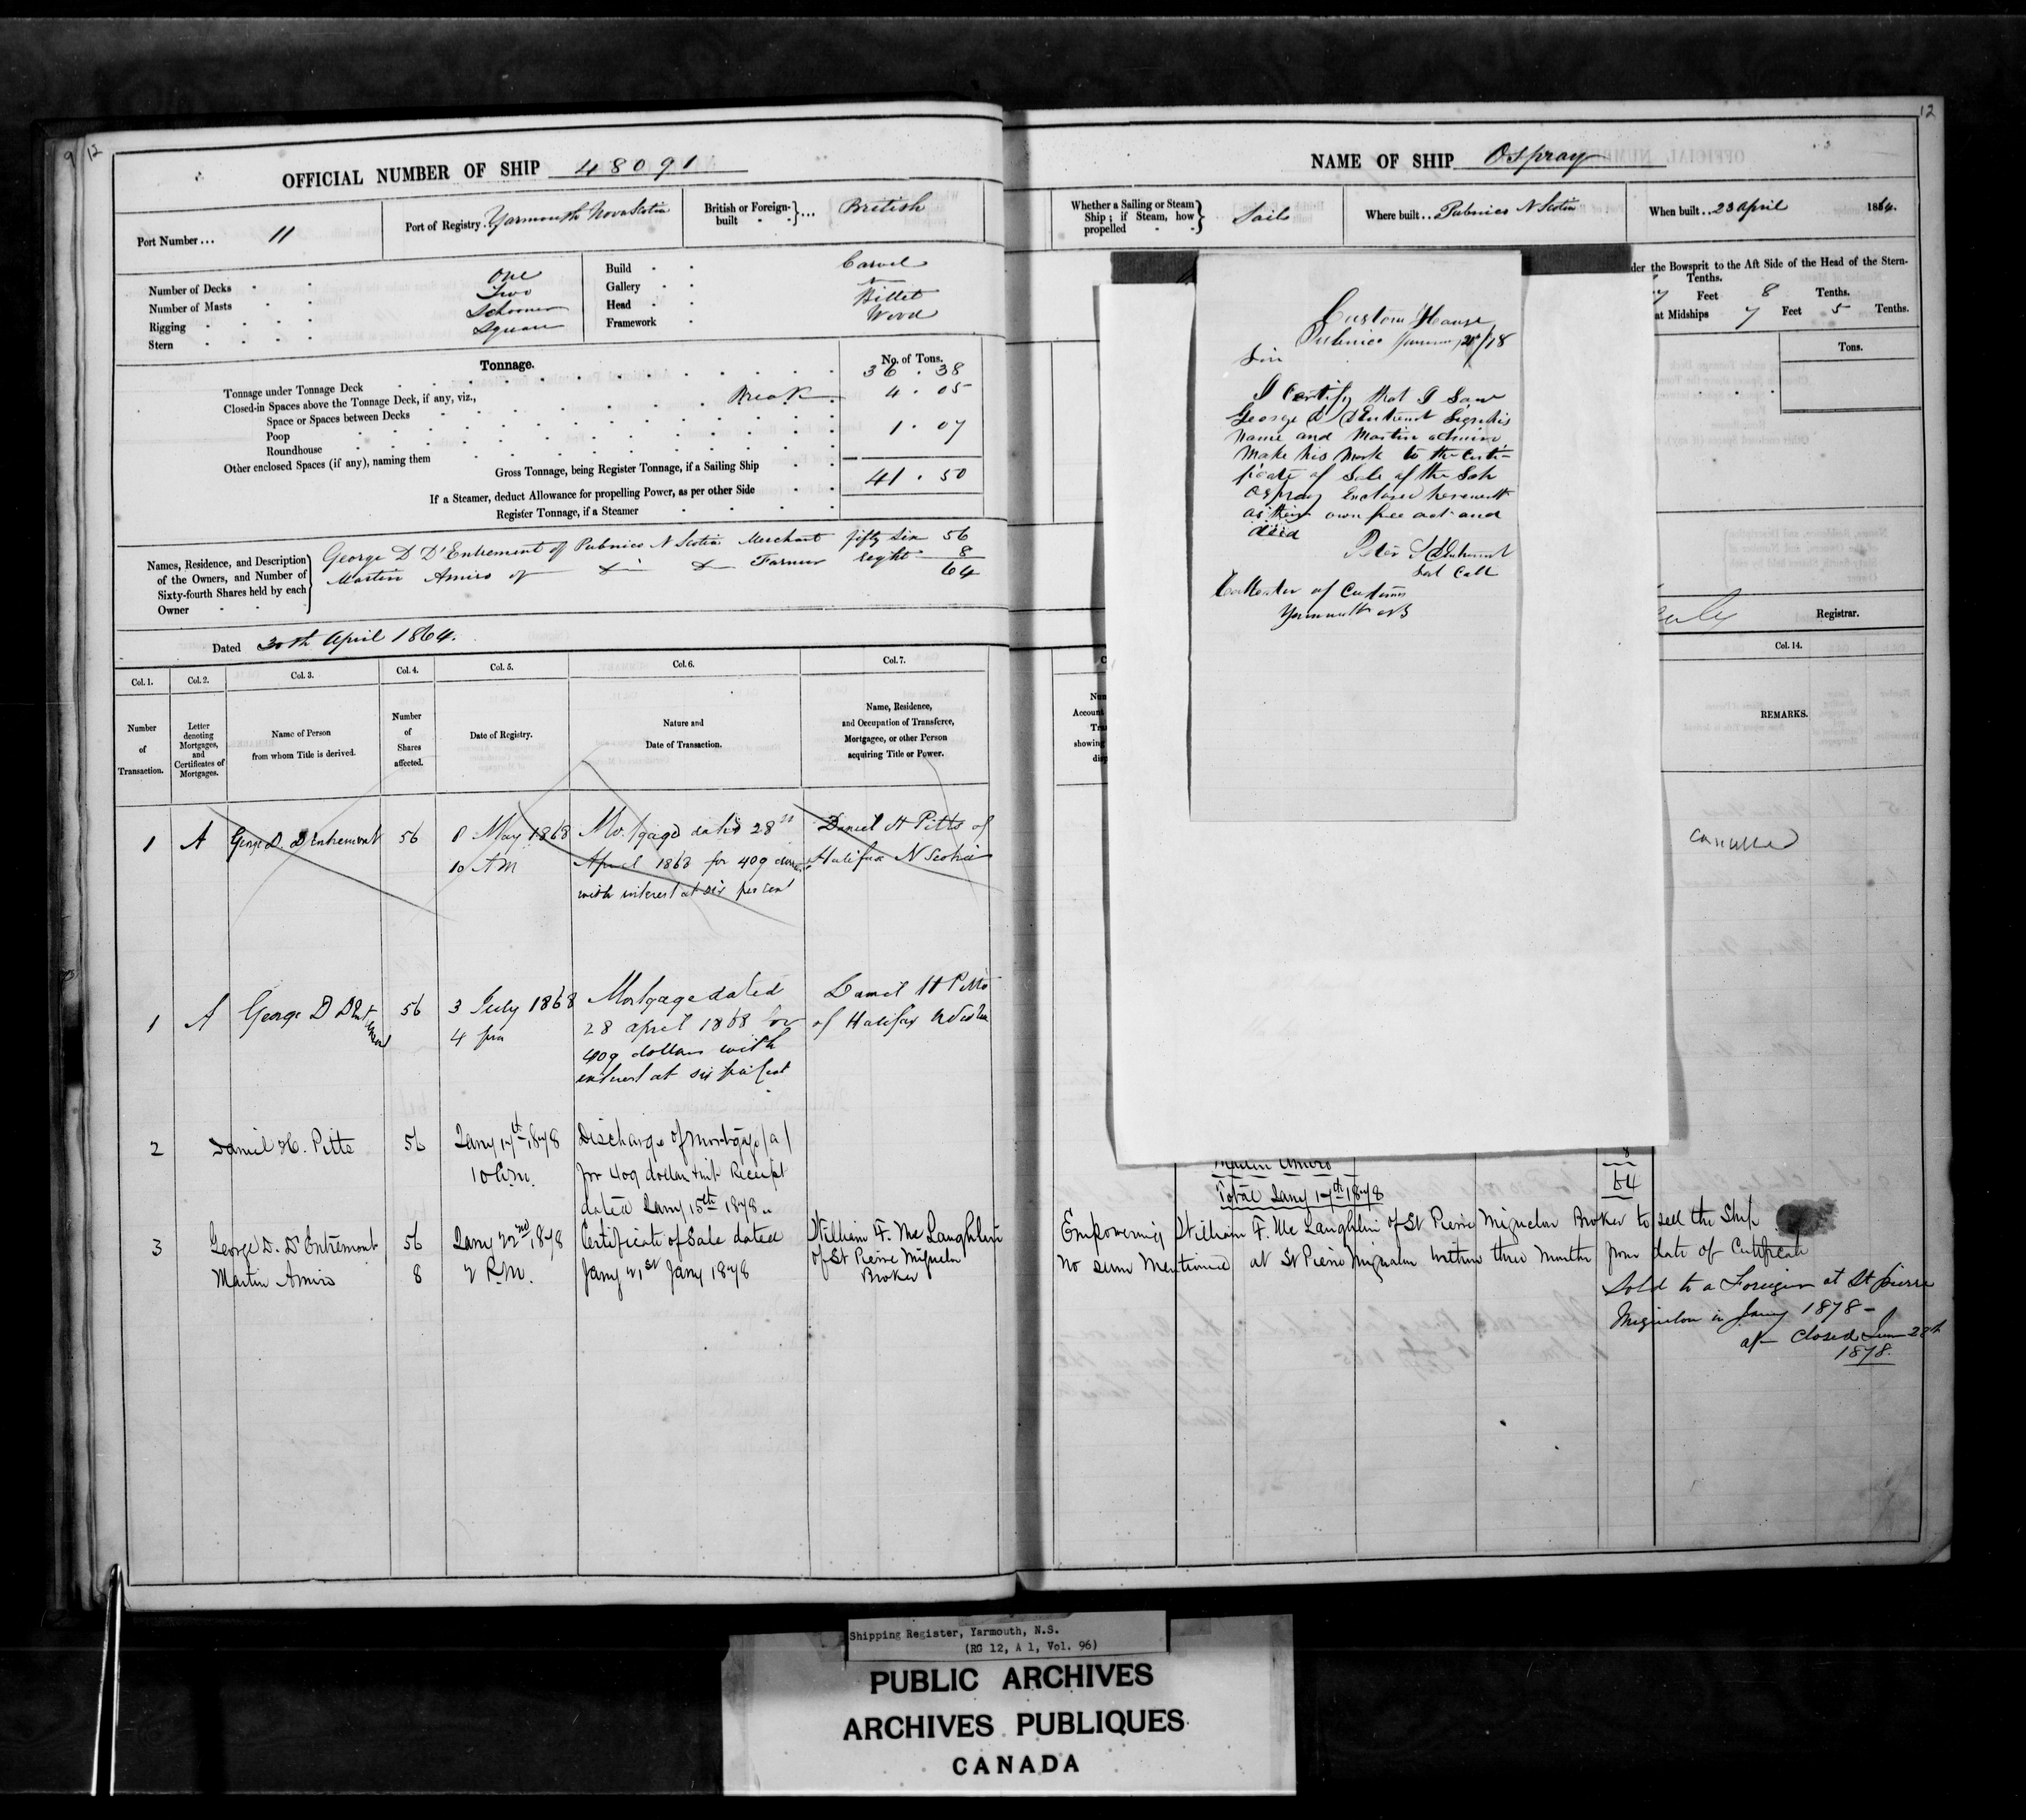 9 12
OFFICIAL NUMBER OF SHIP 48091
Port Number... 11
Port of Registry. Yarmouth Nova Scotia
British or Foreign-built }... British
Number of Decks One
Number of Masts Two
Rigging Schooner
Stern Square
Build Carvel
Gallery
Head Billet
Framework Wood
Tonnage.
No. of Tons.
Tonnage under Tonnage Deck 36.38
Closed-in Spaces above the Tonnage Deck, if any, viz.,
Space or Spaces between Decks Break 4.05
Poop
Roundhouse 1.07
Other enclosed Spaces (if any), naming them
Gross Tonnage, being Register Tonnage, if a Sailing Ship 41.50
If a Steamer, deduct Allowance for propelling Power, as per other Side
Register Tonnage, if a Steamer
Names, Residence, and Description of the Owners, and Number of Sixty-fourth Shares held by each Owner
George D D'Entrement of Pubnico N Scotia Merchant fifty six 56
Martin Amiro of do do Farmer eight 8
64
Dated 30th April 1864.
Col. 1. Col. 2. Col. 3. Col. 4. Col. 5. Col. 6. Col. 7.
Number of Transaction.
Letter denoting Mortgages, and Certificates of Mortgages.
Name of Person from whom Title is derived.
Number of Shares affected.
Date of Registry.
Nature and Date of Transaction.
Name, Residence, and Occupation of Transferee, Mortgagee, or other Person acquiring Title or Power.
1 A George D. D Entremont 56 8 May 1868 Mortgage dated 28th Daniel H Pitts of
10 AM April 1868 for 409 dollars Halifax N Scotia
with interest at six per cent
1 A George D D Entremont 56 3 July 1868 Mortgage dated Daniel H Pitts
4 pm 28 april 1868 for of Halifax N Scotia
409 dollars with
interest at six per cent
2 Daniel H. Pitts 56 Jany 17th 1878 Discharge of mortgage (a)
10 a.m. for 409 dollars Receipt
dated Jany 15th 1878
3 George D. D'Entremont 56 Jany 22nd 1878 Certificate of Sale dated William F. McLaughlin
Martin Amiro 8 2 P.M. Jany 21st Jany 1878 of St Pierre Miquelon
Broker
12
NAME OF SHIP Ospray
Whether a Sailing or Steam Ship; if Steam, how propelled } Sails
Where built.. Pubnico N Scotia
When built.. 23 April 1864.
der the Bowsprit to the Aft Side of the Head of the Stern-
Tenths.
7 Feet 8 Tenths.
at Midships 7 Feet 5 Tenths.
Tons.
Registrar.
Col. 14.
REMARKS.
cancelled
Custom House
Pubnico
Sir
I Certify that I Saw
George D D'Entremont Sign his
Name and Martin Amiro
Make his Mark to the Certi-
ficate of Sale of the Sch
Ospray Enclosed herewith
as their own free act and
deed
Peter D'Entremont
Sub Coll
Collector of Customs
Yarmouth NS
8
Martin Amiro
Total Jany 17th 1878 64
Empowering William F. McLaughlin of St Pierre Miquelon Broker to sell the Ship
No sum Mentioned at St Pierre Miquelon within three Months from date of Certificate
Sold to a Foreigner at St Pierre
Miquelon in Jany 1878 -
Closed June 28th
1878.
Shipping Register, Yarmouth, N.S.
(RG 12, A 1, Vol. 96)
PUBLIC ARCHIVES
ARCHIVES PUBLIQUES
CANADA